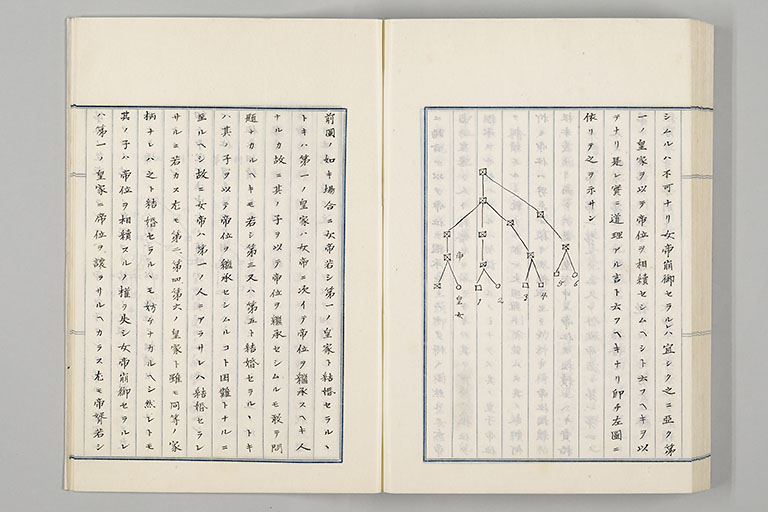 シムルハ不可ナリ女帝崩御セラルレハ宜シク之ニ亞ク第
一ノ皇家ヲ以テ帝位ヲ相續セシムヘシト云フヘキヲ以
テナリ是レ實ニ道理アル言ト云フヘキナリ即チ左圖ニ
依リテ之ヲ示サン
帝
皇女
1
2
3
4
5
6
前圖ノ如キ場合ニ女帝若シ第一ノ皇家ト結婚セラルヽ
トキハ第一ノ皇家ハ女帝ニ次イテ帝位ヲ繼承スヘキ人
ナルカ故ニ其ノ子ヲ以テ帝位ヲ繼承セシムルモ敢テ問
題ナカルヘキモ若シ第三又ハ第五ト結婚セラルヽトキ
ハ其ノ子ヲ以テ帝位ヲ繼承セシムルコト困難トナルニ
至ルヘシ故ニ女帝ハ第一ノ人ニアラサレハ結婚セラレ
サルニ若カス尤モ第二第四第六ノ皇家ト雖モ同等ノ家
柄ナレハ之ト結婚セラルヽモ妨ケナカルヘシ然レトモ
其ノ子ハ帝位ヲ相續スルノ權ヲ失シ女帝崩御セラルレ
ハ第一ノ皇家ニ帝位ヲ讓ラサルヘカラス尤モ帝婿若シ